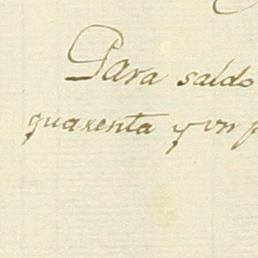 Para saldo
quarenta y un p